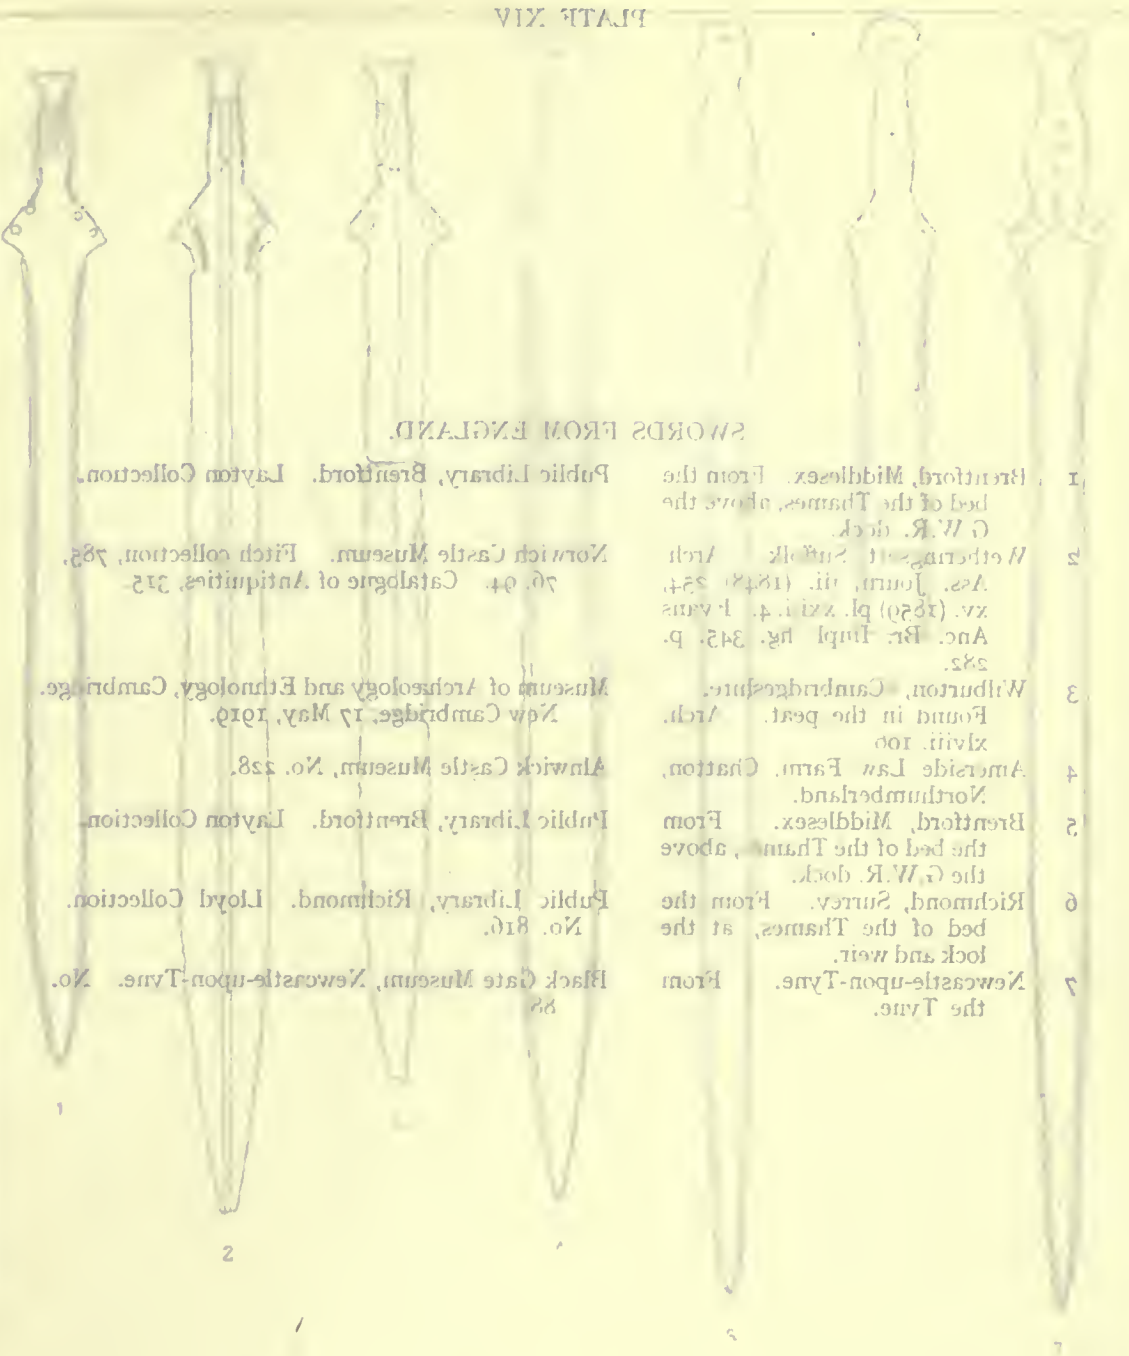 PLATE XIV
SWORDS FROM ENGLAND.
1 Brentford, Middlesex. From the
bed of the Thames, above the
G.W.R. dock.
Public Library, Brentford. Layton Collection.
2 Suffolk. Arch
Ass. Journ, iii. (1848) 254,
xv. (1859) pl. 4. Evans
Anc. Br. Impl 345. p.
282.
Norwich Castle Museum. Fitch collection, 785,
76. 94. Catalogue of Antiquities, 315
3 Wilburton, Cambridgeshire.
Found in the peat. Arch.
xlviii. 106
Museum of Archæology and Ethnology, Cambridge.
New Cambridge, 17 May, 1919.
4 Amerside Law Farm. Chatton,
Northumberland.
Alnwick Castle Museum, No. 228.
5 Brentford, Middlesex. From
the bed of the Thames, above
the G.W.R. dock.
Public Library, Brentford. Layton Collection.
6 Richmond, Surrey. From the
bed of the Thames, at the
lock and weir.
Public Library, Richmond. Lloyd Collection.
No. 816.
7 Newcastle-upon-Tyne. From
the Tyne.
Black Gate Museum, Newcastle-upon-Tyne. No.
88
1
2
5
7